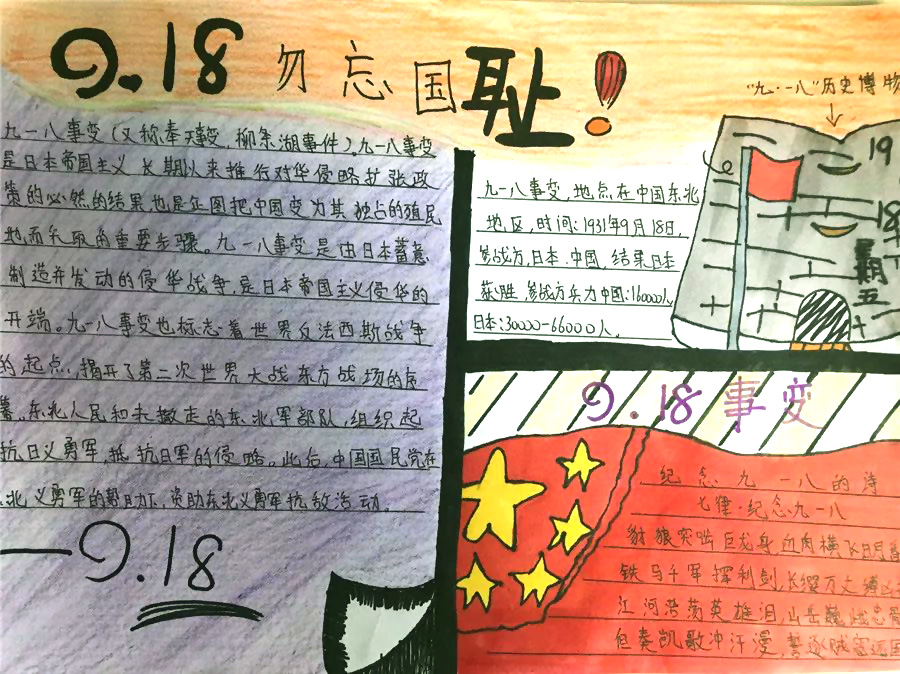 9.18 勿忘国耻!
九一八事变(又称奉天事变、柳条湖事件)。九一八事变
是日本帝国主义长期以来推行对华侵略扩张政
策的必然的结果,也是企图把中国变为其独占的殖民
地而采取的重要步骤。九一八事变是由日本蓄意
制造并发动的侵华战争,是日本帝国主义侵华的
开端。九一八事变也标志着世界反法西斯战争
的起点,揭开了第二次世界大战东方战场的
。东北人民和未撤走的东北军部队,组织起
抗日义勇军,抵抗日军的侵略。此后,中国国民党在
北义勇军的帮助下,资助东北义勇军抗敌活动。
一9.18
"九·一八"历史博物
19
18
星期五
九一八事变,地点在中国东北
地区,时间:1931年9月18日,
参战方,日本.中国,结果日本
获胜 参战方兵力中国:160000人
日本:30000-66000人.
9.18事变
纪念九一八的诗
七律·纪念九一八
豺狼突啮巨龙身,血肉横飞日月
铁马千军挥利剑,长缨万丈缚
江河浩荡英雄泪,山岳巍峨忠
但奏凯歌冲汗漫,誓逐贼寇